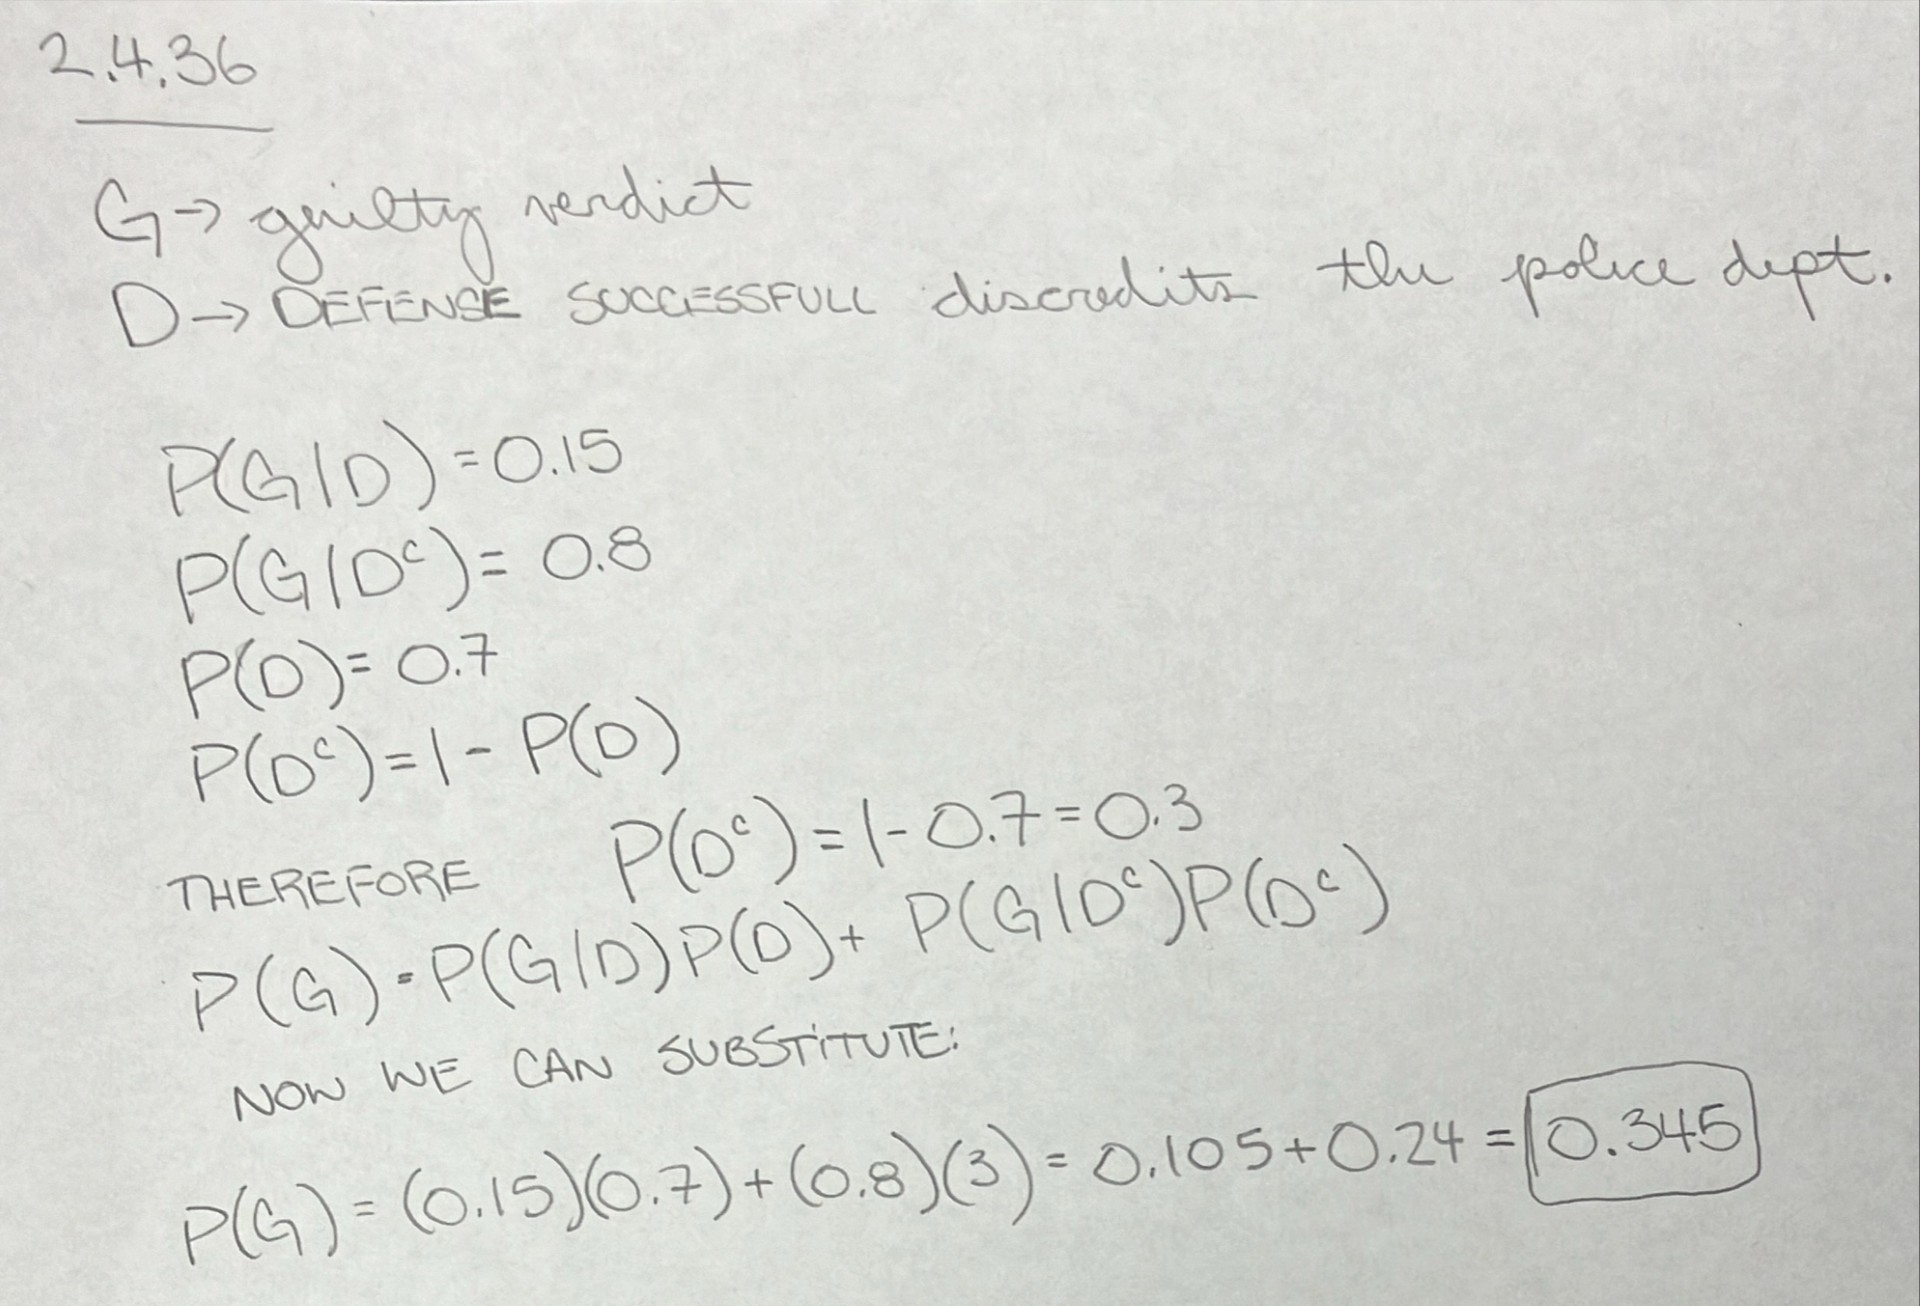 2.4.36
G → guilty verdict
D → DEFENSE SUCCESSFULL discredits the police dept.
P(G|D) = 0.15
P(G|Dᶜ) = 0.8
P(D) = 0.7
P(Dᶜ) = 1 - P(D)
THEREFORE P(Dᶜ) = 1 - 0.7 = 0.3
P(G) = P(G|D)P(D) + P(G|Dᶜ)P(Dᶜ)
NOW WE CAN SUBSTITUTE:
P(G) = (0.15)(0.7) + (0.8)(3) = 0.105 + 0.24 = 0.345